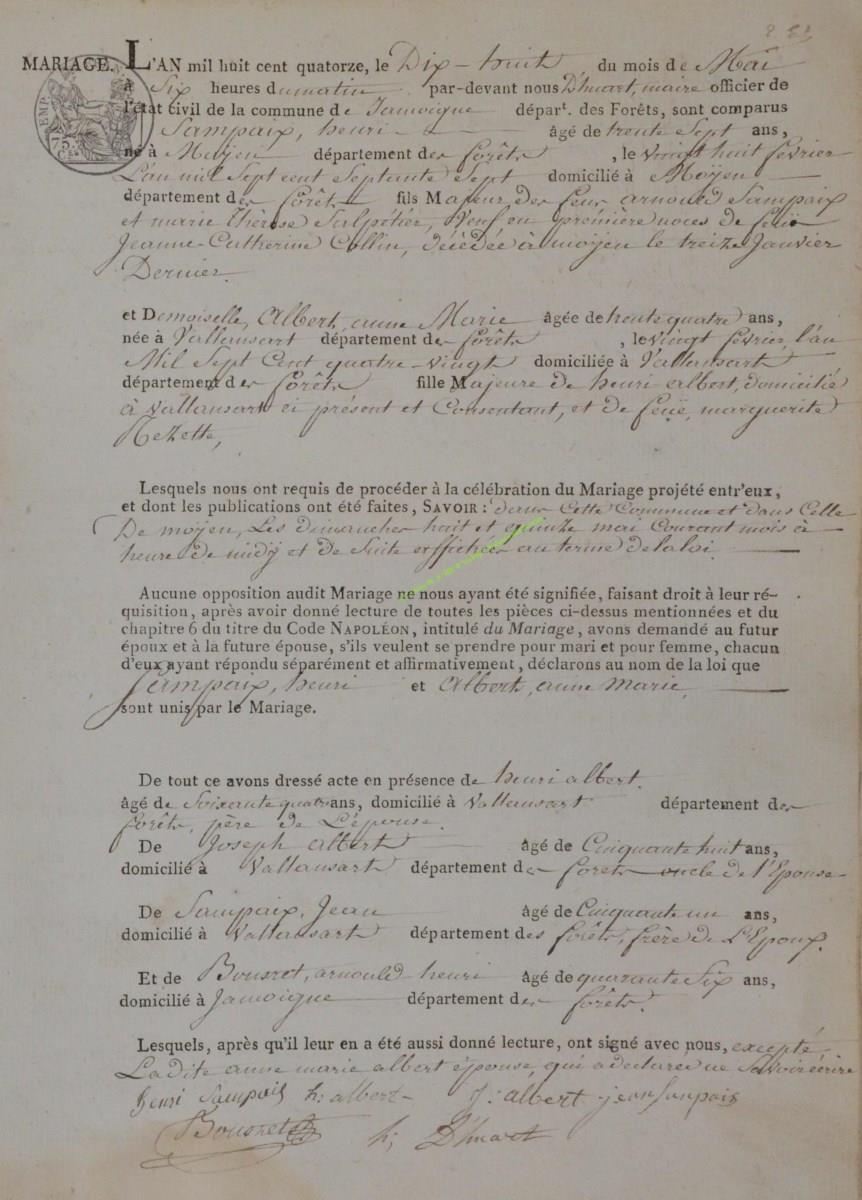 MARIAGE. L'AN mil huit cent quatorze, le Dix-huit du mois de Mai
à Six heures du matin par-devant nous D'huart, maire officier de
l'état civil de la commune de Jamoigne départ. des Forêts, sont comparus
Sampaix, henri âgé de trente Sept ans,
né à Moyen département des forêts, le vingt huit février
L'an mil Sept cent Septante Sept domicilié à Moyen
département des forêts fils Majeur des feux arnould Sampaix
et marie thérèse Salpétier, Veuf en première noces de feüe
Jeanne-Catherine Collin, décédée à moyen le treize Janvier
Dernier.
et Demoiselle, Albert, anne Marie âgée de trente quatre ans,
née à Vallansart département des forêts, le vingt février, l'an
Mil Sept Cent quatre-vingt domiciliée à Vallansart
département des forêts fille Majeure de henri albert, domicilié
à Vallansart ci présent et Consentant, et de feüe, marguerite
Rezette,
Lesquels nous ont requis de procéder à la célébration du Mariage projété entr'eux,
et dont les publications ont été faites, SAVOIR : dans Cette Commune et dans Celle
De moyen, Les dimanches huit et quinze mai Courant mois à
heure de midÿ et de Suite affichées au terme de la loi.
Aucune opposition audit Mariage ne nous ayant été signifiée, faisant droit à leur ré-
quisition, après avoir donné lecture de toutes les pièces ci-dessus mentionnées et du
chapitre 6 du titre du Code NAPOLÉON, intitulé du Mariage, avons demandé au futur
époux et à la future épouse, s'ils veulent se prendre pour mari et pour femme, chacun
d'eux ayant répondu séparément et affirmativement, déclarons au nom de la loi que
Sampaix, henri et Albert, anne Marie,
sont unis par le Mariage.
De tout ce avons dressé acte en présence de henri albert.
âgé de Soixante quatre ans, domicilié à Vallansart département des
forêts, père de L'épouse.
De Joseph Albert âgé de Cinquante huit ans,
domicilié à Vallansart département des forets oncle de l'Epouse
De Sampaix, Jean âgé de Cinquante un ans,
domicilié à Vallansart département des forêts, frère de L'Epoux.
Et de Bousret, arnould henri âgé de quarante Six ans,
domicilié à Jamoigne département des forêts.
Lesquels, après qu'il leur en a été aussi donné lecture, ont signé avec nous, excepté
La dite anne marie albert épouse, qui a declarée ne Savoir écrire
henri Sampaix h: albert J: albert jean Sanpaix
Bousret h; D'huart